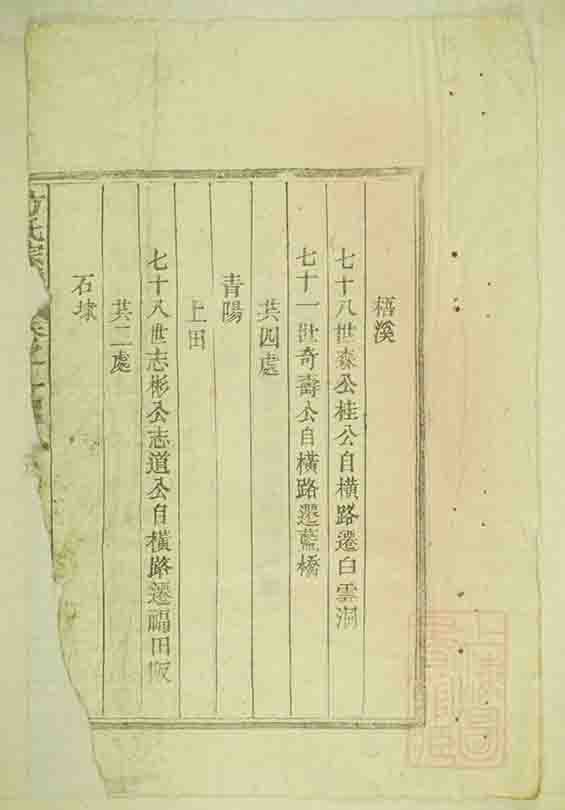 梧溪
七十八世森公桂公自橫路遷白雲洞
七十一世奇壽公自橫路遷藍橋
共四處
青陽
上田
七十八世志彬公志道公自橫路遷福田畈
共二處
石埭
方氏宗